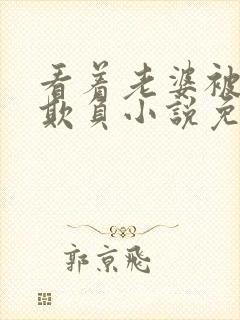 看着老婆被
欺负小說免
郭京飛